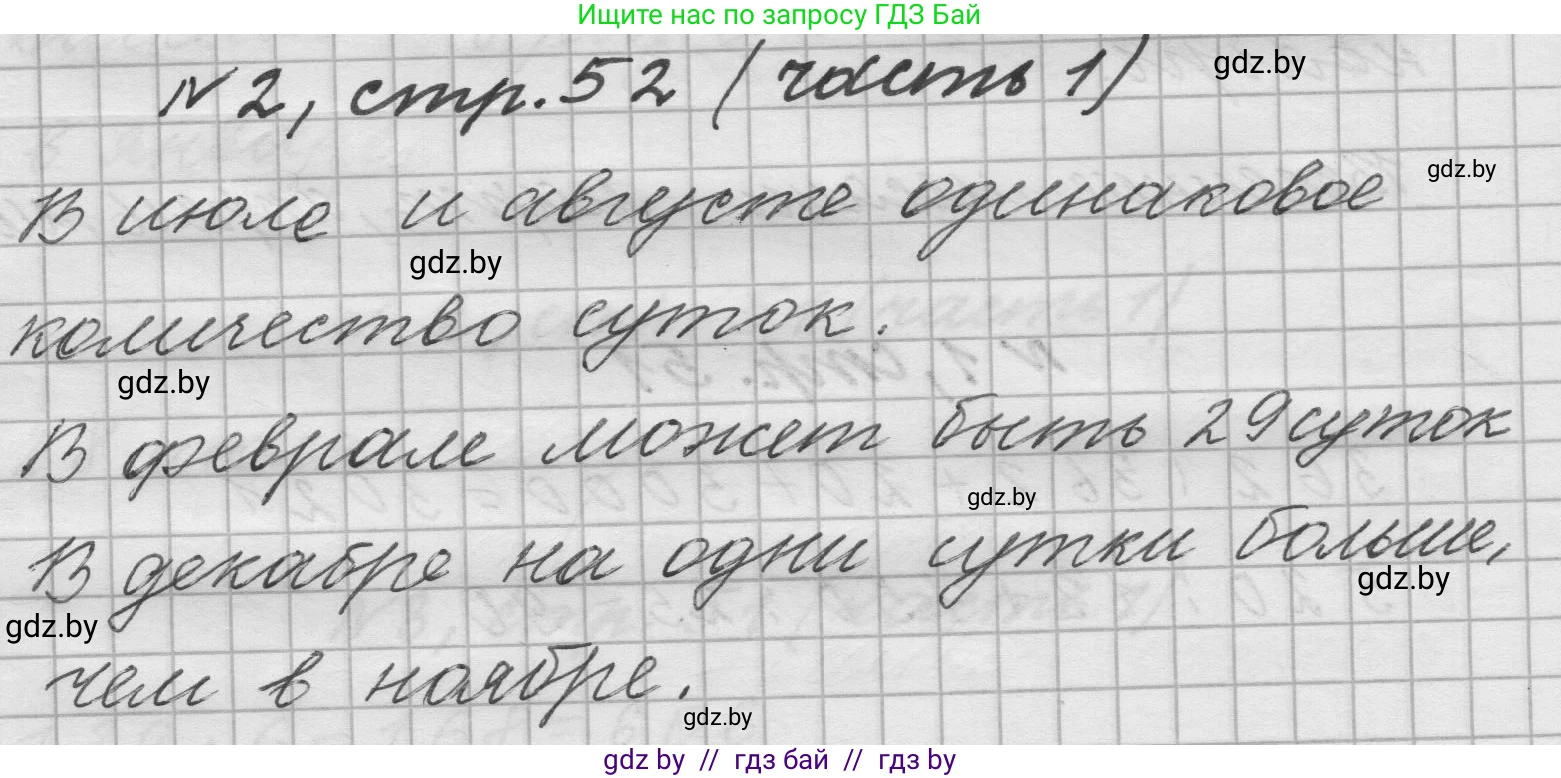 Ищите нас по запросу ГДЗ Бай
N2, стр. 52 (часть 1)
gdz.by
В июле и августе одинаковое
gdz.by
gdz.by
количество суток.
gdz.by
В феврале может быть 29 суток
gdz.by
В декабре на одни сутки больше,
gdz.by
gdz.by
чем в ноябре.
gdz.by
gdz by // гдз бай // гдз by